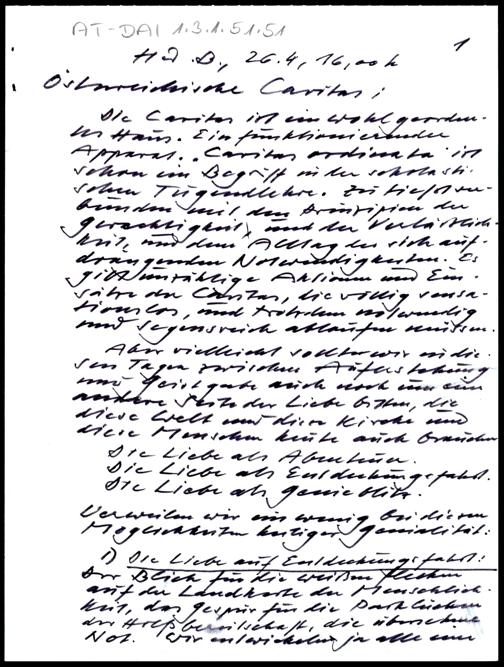 AT-DAI 1.3.1.51.51
1
H.d.B., 26.4., 16,00 h
Österreichische Caritas;
Die Caritas ist ein wohl geordne-
tes Haus. Ein funktionierender
Apparat. "Caritas ordinata" ist
schon ein Begriff in der scholasti-
schen Tugendlehre. Zutiefst ver-
bunden mit den Prinzipien der
Gerechtigkeit, und der Verlässlich-
keit, und dem Alltag der sich auf-
drängenden Notwendigkeiten. Es
gibt unzählige Aktionen und Ein-
sätze der Caritas, die völlig sensa-
tionslos, und trotzdem notwendig
und segensreich ablaufen müssen.
Aber vielleicht sollten wir in die-
sen Tagen zwischen Auferstehung
und Geistgabe auch noch um eine
andere Seite der Liebe bitten, die
diese Welt und diese Kirche und
diese Menschen heute auch brauchen
Die Liebe als Abenteuer.
Die Liebe als Entdeckungsfahrt.
Die Liebe als Genieblitz.
Verweilen wir ein wenig bei diesen
Möglichkeiten heiliger Genialität:
1) Die Liebe auf Entdeckungsfahrt:
Der Blick für die weißen Flecken
auf der Landkarte der Menschlich-
keit, das Gespür für die Parklücken
der Hilfsbereitschaft, die übersehene
Not. Wir entwickeln ja alle eine